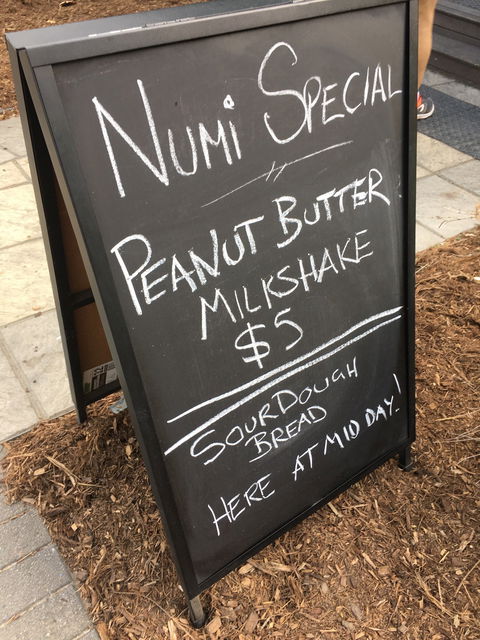 NUMi SPECIAL
PEANUT BUTTER
MILKSHAKE
$5
SOURDOUGH
BREAD
HERE AT MID DAY!